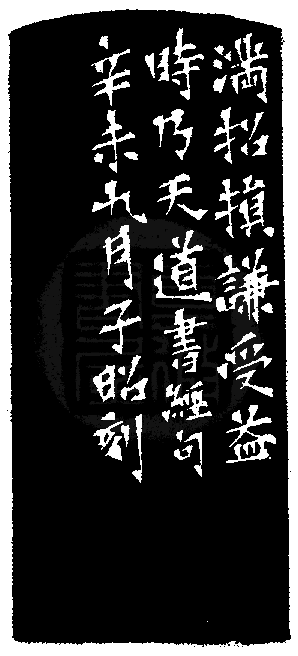 满招損謙受益
時乃天道書經句
辛未九月子昭刻